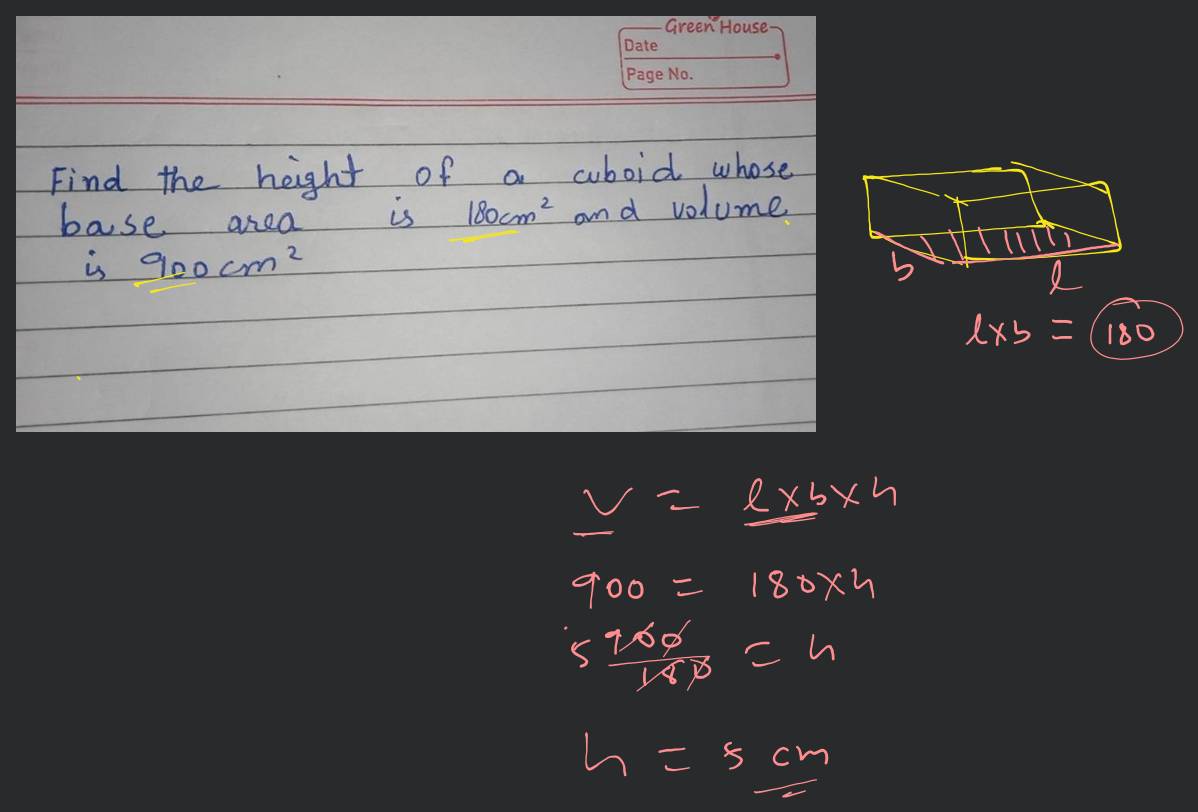 Green House
Date
Page No.
Find the height of a cuboid whose
base area is 180cm² and volume
is 900cm²
b
l
l×b = 180
V = l×b×h
900 = 180×h
5 900/180 = h
h = 5 cm